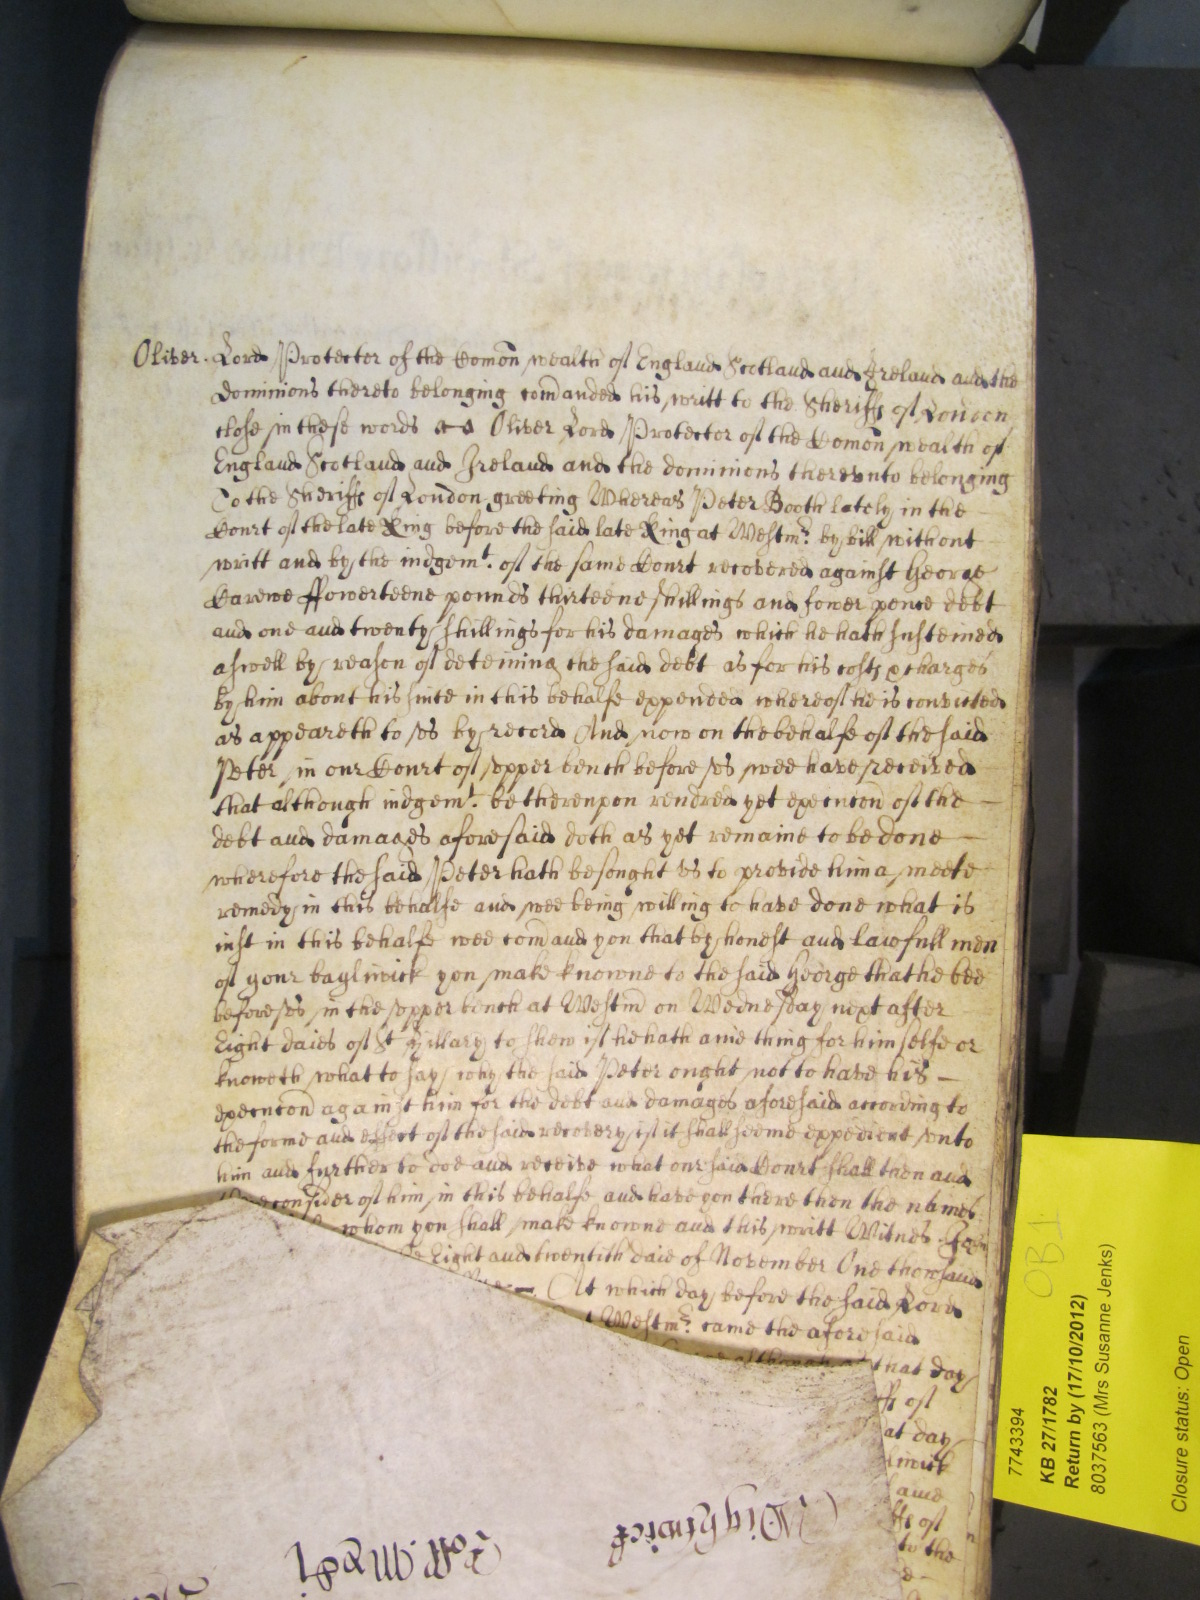 Oliver Lord Protector of the Comōn wealth of England Scotland and Ireland and the
dominions thereto belonging com̄anded his writt to the Sheriffs of London
close in these words Oliver Lord Protector of the Comōn wealth of
England Scotland and Ireland and the dominions therevnto belonging
To the Sheriffs of London greeting Whereas Peter Booth lately in the
Court of the late King before the said late King at Westmr. by bill without
writt and by the iudgemt. of the same Court recovered against George
Carewe ffowerteene pounds thirteene shillings and fower pence debt
and one and twenty shillings for his damages which he hath susteined
aswell by reason of deteining the said debt as for his costs & charges
by him about his suite in this behalfe expended whereof he is convicted
as appeareth to vs by record And now on the behalfe of the said
Peter in our Court of vpper bench before vs wee have received
that although iudgemt. be therevpon rendred yet execucōn of the
debt and damages aforesaid doth as yet remaine to be done
wherefore the said Peter hath besought vs to provide him a meete
remedy in this behalfe and wee being willing to have done what is
iust in this behalfe wee com̄and you that by honest and lawfull men
of your bayliwick you make knowne to the said George that he bee
before vs in the vpper bench at Westm̄ on Wednesday next after
Eight daies of St Hillary to shew if he hath anie thing for himselfe or
knoweth what to say why the said Peter ought not to have his
execucōn against him for the debt and damages aforesaid according to
the forme and effect of the said recovery if it shall seeme expedient vnto
him and further to doe and receive what our said Court shall then and
consider of him in this behalfe and have you there then the names
whom you shall make knowne and this writt Witnes
Eight and twentith daie of November One thowsand
At which day before the said Lord
Westmr. came the aforesaid
although at that day
of
at day
liwick
anie
of
to the
Wightwick
7743394
KB 27/1782
Return by (17/10/2012)
8037563 (Mrs Susanne Jenks)
Closure status: Open
OB 1